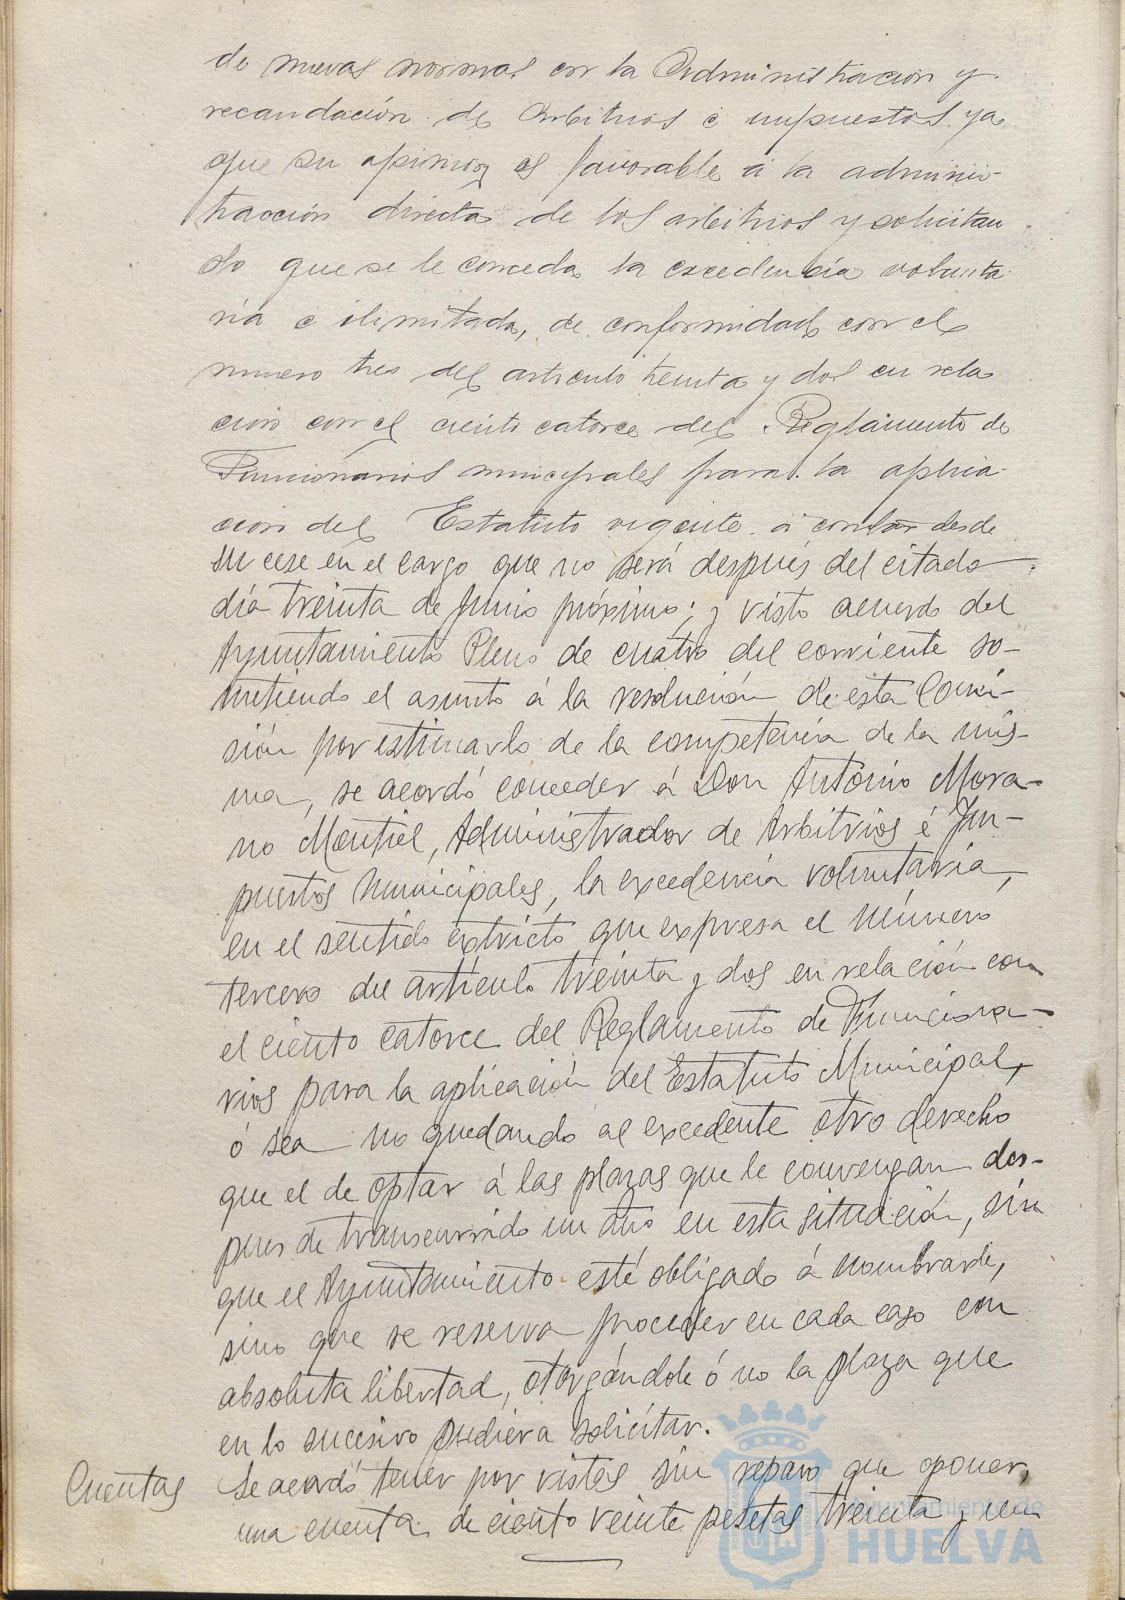 do nuevas normas en la Administración y
recaudación de arbitrios e impuestos ya
que su opinion es favorable á la adminis-
tracción directa de los arbitrios y solicitan
do que se le conceda la excedencia volunta-
ria e ilimitada, de conformidad con el
numero tres del articulo treinta y dos en rela
ción con el ciento catorce del Reglamento de
Funcionarios municipales para la aplica-
ción del Estatuto vigente á contar desde
su cese en el cargo que no será después del citado
día treinta de Junio próximo; y visto acuerdo del
Ayuntamiento Pleno de cuatro del corriente so-
metiendo el asunto á la resolución de esta Comi-
sión por estimarlo de la competencia de la mis-
ma, se acordó conceder á Don Antonio Mora-
no Montiel, Administrador de Arbitrios é Im-
puestos Municipales, la excedencia voluntaria,
en el sentido extricto que expresa el número
tercero del artículo treinta y dos en relación con
el ciento catorce del Reglamento de Funciona-
rios para la aplicación del Estatuto Municipal,
ó sea no quedando al excedente otro derecho
que el de optar á las plazas que le convengan des-
pues de transcurrido un año en esta situación, sin
que el Ayuntamiento esté obligado á nombrarle,
sino que se reserva proceder en cada caso con
absoluta libertad, otorgándole ó no la plaza que
en lo sucesivo pudiera solicitar.
Cuentas Se acordó tener por vistas sin reparo que oponer,
una cuenta de ciento veinte pesetas treinta y un
Ayuntamiento de
HUELVA